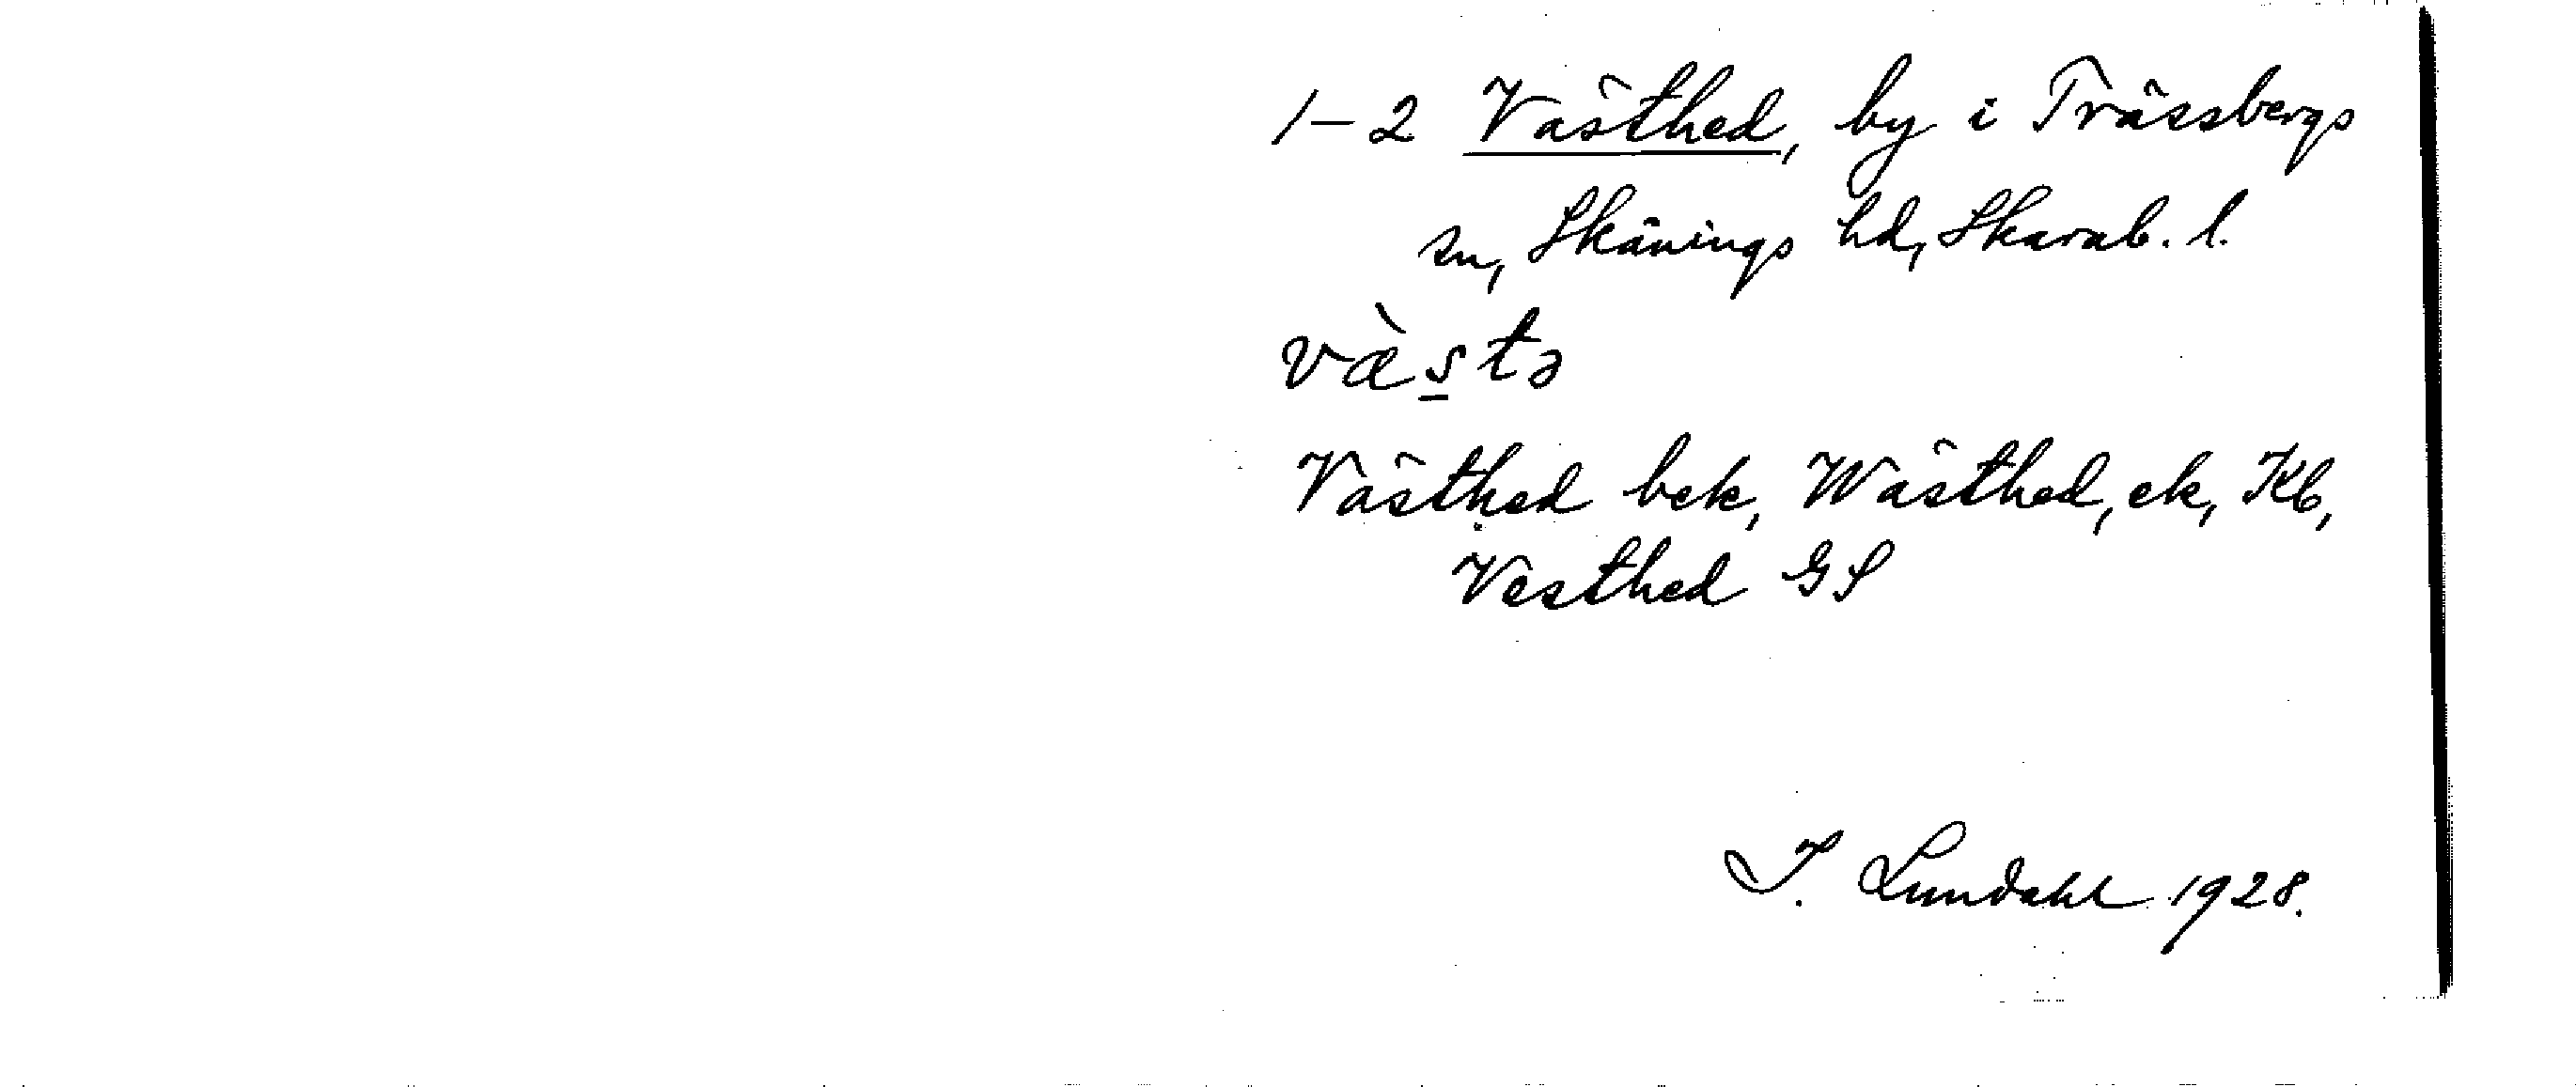 1–2 Västhed, by i Trässbergs
sn, Skånings hd, Skarab. l.
væ̀s̲tə
Västhed bek, Wästhed, ek, Kb,
Vesthed GS
I. Lundahl 1928.